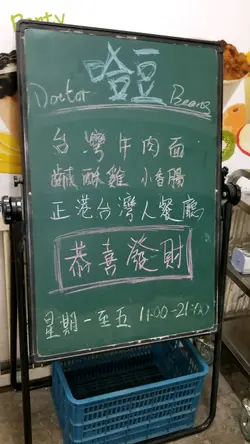 Party
哈豆
Doctor Beans
台灣牛肉面
鹹酥雞 小香腸
正港台灣人餐廳
恭喜發財
星期一至五 11:00-21:00